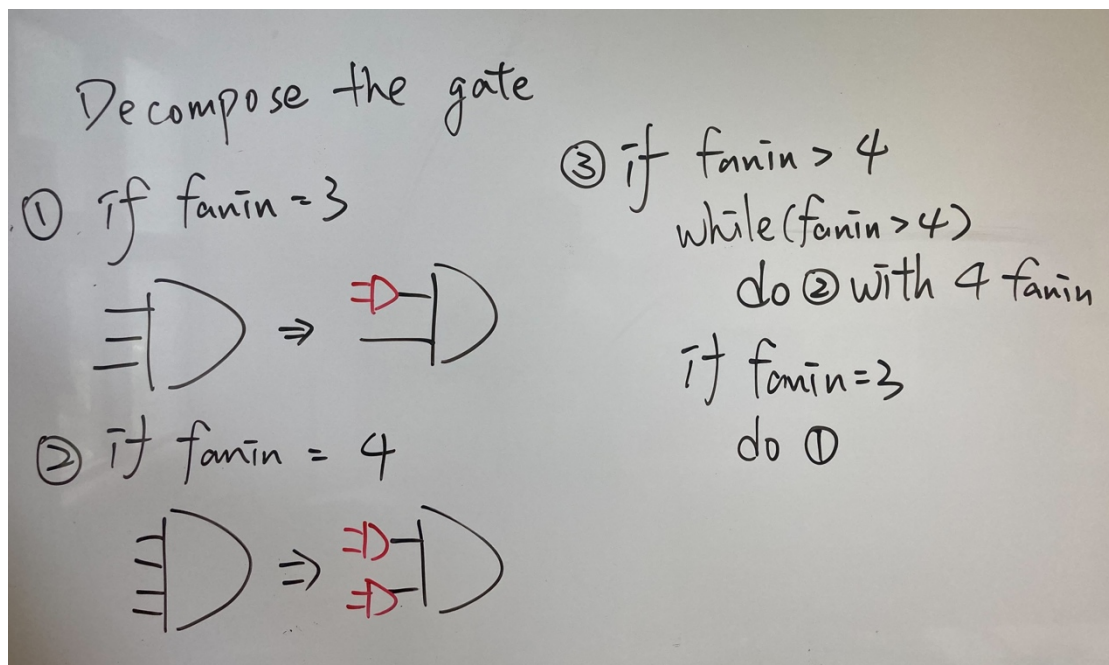 Decompose the gate
① if fanin = 3
② if fanin = 4
③ if fanin > 4
while (fanin > 4)
do ② with 4 fanin
if fanin = 3
do ①